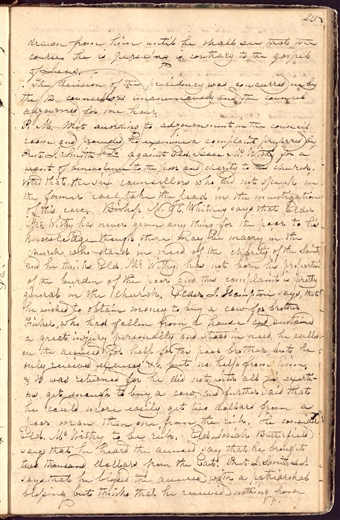 drawn from him until he shall see that the
course he is pursuing is contrary to the gospel
of Jesus.
The decision of the residency was concurred in by
the 12 counsellors unanimously and the council
adjourned for one hour.
P. M. Met according to adjournment in the council
room and proceeded to examine a complaint preferred by
Prest J. Smith against Eld. Isaac McWithy for a
want of benevolence to the poor and charity to the church.
Voted that the six councillors who did not speak in
the former case, take the lead in the investigation
of this case. Bishop N. K. Whitney says that Elder
McWithy has never given any thing for the poor to his
knowledge though there may be many in the
church who stand in need of the charity of the Saints
and he thinks Eld. McWithy has not born his proportion
of the burden of the poor and this complaint is pretty
general in the church. Elder I. Hampton says, that
he wished to obtain money to buy a cow for brother
Fisher, who had fallen from a house and sustained
a great injury personally and was in need he called
on the accused for help for this poor brother but he
only received but no help from him,
& it was returned for he did not with all his exerti-
ons get enough to buy a cow, and further said that
he could more easily get two dollars from a
poor man than one from the rich, he considers
Eld. McWithy to be rich. Eld. Josiah Butterfield
says that he heard the accused say that he brought
two thousand dollars from the East. Prest J. Smith
says that he blessed the accused with a patriarchal
blessing but thinks that he received nothing from